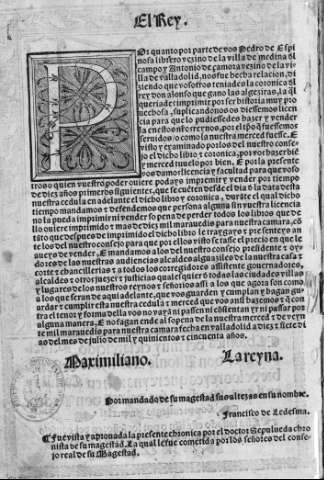 El Rey.
Por quanto por parte de vos Pedro de Espi
nosa librero vezino de la villa de medina del
campo y Antonio de çamora vezino de la vi
lla de valladolid, nos fue hecha relacion, di
ziendo que vosotros teniades la coronica del
rey don alonso que gano las algeziras, la q̃l
queriades imprimir por ser historia muy pro
uechosa, suplicandonos os diessemos licen
cia para que lo pudiessedes hazer y vender
en estos nuestros reynos, por el tp̃o q̃ fuessemos
seruidos / o como la nuestra merced fuesse. E
visto y examinado por los del nuestro conse
jo el dicho libro y coronica, por vos hazer biẽ
y merced tuue lo por bien. E por la presente
vos damos licencia y facultad para que voso
tros o quien vuestro poder ouiere podays imprimir y vender por tiempo
de diez años primeros siguientes, que se cuẽten desde el dia d̃ la data desta
nuestra cedula en adelante el dicho libro y coronica, durãte el qual dicho
tiempo mandamos y defendemos que persona alguna sin vuestra licencia
no la pueda imprimir ni vender so pena de perder todos los libros que de
llo ouiere imprimido y mas de diez mil marauedis para nuestra camara, cõ
tãto que despues de imprimido el dicho libro le traygays y presenteys an
te los del nuestro consejo para que por ellos visto se tasse el precio en que le
aueys de vender. E mandamos a los del nuestro consejo presidente y oy
dores de las nuestras audiencias alcaldes alguaziles de la nuestra casa y
corte y chancillerias, y a todos los corregidores assistente gouernadores,
alcaldes y otros juezes y justicias qualesquier de todas las ciudades villas
y lugares de los nuestros reynos y señorios assi a los que agora son como
a los que seran de aqui adelante, que vos guarden y cumplan y hagan gu-
ardar y cumplir esta nuestra cedula y merced que vos ansi hazemos y cõ
tra el tenor y forma della no vayã ni passen ni consientan yr ni passar por
alguna manera. E no fagan ende al so pena de la nuestra merced y de veyn
te mil marauedis para nuestra camara fecha en valladolid a diez y siete di
as del mes de julio de mil y quinientos y cincuenta años.
Maximiliano. La reyna.
Por mandado de su magestad sus altezas en su nombre.
Francisco de Ledesma.
Fue vista y aprouada la presente chronica por el doctor Sepulueda chro
nista de su magestad. La qual le fue cometida por los señores del conse
jo real de su Magestad.